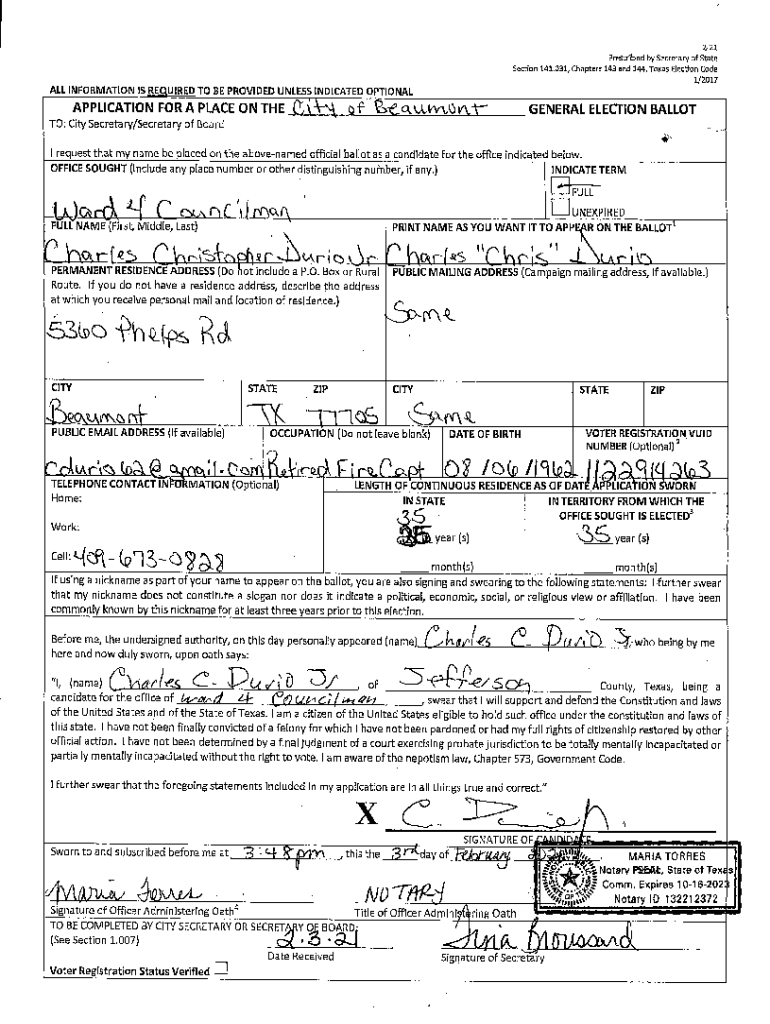 2-21
Prescribed by Secretary of State
Section 141.031, Chapters 143 and 144, Texas Election Code
1/2017
ALL INFORMATION IS REQUIRED TO BE PROVIDED UNLESS INDICATED OPTIONAL
APPLICATION FOR A PLACE ON THE City of Beaumont GENERAL ELECTION BALLOT
TO: City Secretary/Secretary of Board
I request that my name be placed on the above-named official ballot as a candidate for the office indicated below.
OFFICE SOUGHT (Include any place number or other distinguishing number, if any.) INDICATE TERM
FULL
Ward 4 Councilman UNEXPIRED
FULL NAME (First, Middle, Last) PRINT NAME AS YOU WANT IT TO APPEAR ON THE BALLOT1
Charles Christopher Durio Jr Charles "Chris" Durio
PERMANENT RESIDENCE ADDRESS (Do not include a P.O. Box or Rural PUBLIC MAILING ADDRESS (Campaign mailing address, if available.)
Route. If you do not have a residence address, describe the address
at which you receive personal mail and location of residence.)
Same
5360 Phelps Rd
CITY STATE ZIP CITY STATE ZIP
Beaumont TX 77705 Same
PUBLIC EMAIL ADDRESS (If available) OCCUPATION (Do not leave blank) DATE OF BIRTH VOTER REGISTRATION VUID
NUMBER (Optional)2
cdurio62@gmail.com Retired Fire Capt 08/06/1962 1122914263
TELEPHONE CONTACT INFORMATION (Optional) LENGTH OF CONTINUOUS RESIDENCE AS OF DATE APPLICATION SWORN
Home: IN STATE IN TERRITORY FROM WHICH THE
35 OFFICE SOUGHT IS ELECTED3
Work: year (s) 35 year (s)
Cell: 409-673-0828 month(s) month(s)
If using a nickname as part of your name to appear on the ballot, you are also signing and swearing to the following statements: I further swear
that my nickname does not constitute a slogan nor does it indicate a political, economic, social, or religious view or affiliation. I have been
commonly known by this nickname for at least three years prior to this election.
Before me, the undersigned authority, on this day personally appeared (name) Charles C. Durio Jr, who being by me
here and now duly sworn, upon oath says:
"I, (name) Charles C. Durio Jr of Jefferson County, Texas, being a
candidate for the office of ward 4 Councilman, swear that I will support and defend the Constitution and laws
of the United States and of the State of Texas. I am a citizen of the United States eligible to hold such office under the constitution and laws of
this state. I have not been finally convicted of a felony for which I have not been pardoned or had my full rights of citizenship restored by other
official action. I have not been determined by a final judgment of a court exercising probate jurisdiction to be totally mentally incapacitated or
partially mentally incapacitated without the right to vote. I am aware of the nepotism law, Chapter 573, Government Code.
I further swear that the foregoing statements included in my application are in all things true and correct."
X
SIGNATURE OF CANDIDATE
Sworn to and subscribed before me at 3:48pm, this the 3rd day of February
MARIA TORRES
Notary State of Texas
Comm. Expires 10-16-2023
Notary ID 132212372
Maria Torres NOTARY
Signature of Officer Administering Oath4 Title of Officer Administering Oath
TO BE COMPLETED BY CITY SECRETARY OR SECRETARY OF BOARD:
(See Section 1.007) 2.3.21 Tina Broussard
Date Received Signature of Secretary
Voter Registration Status Verified